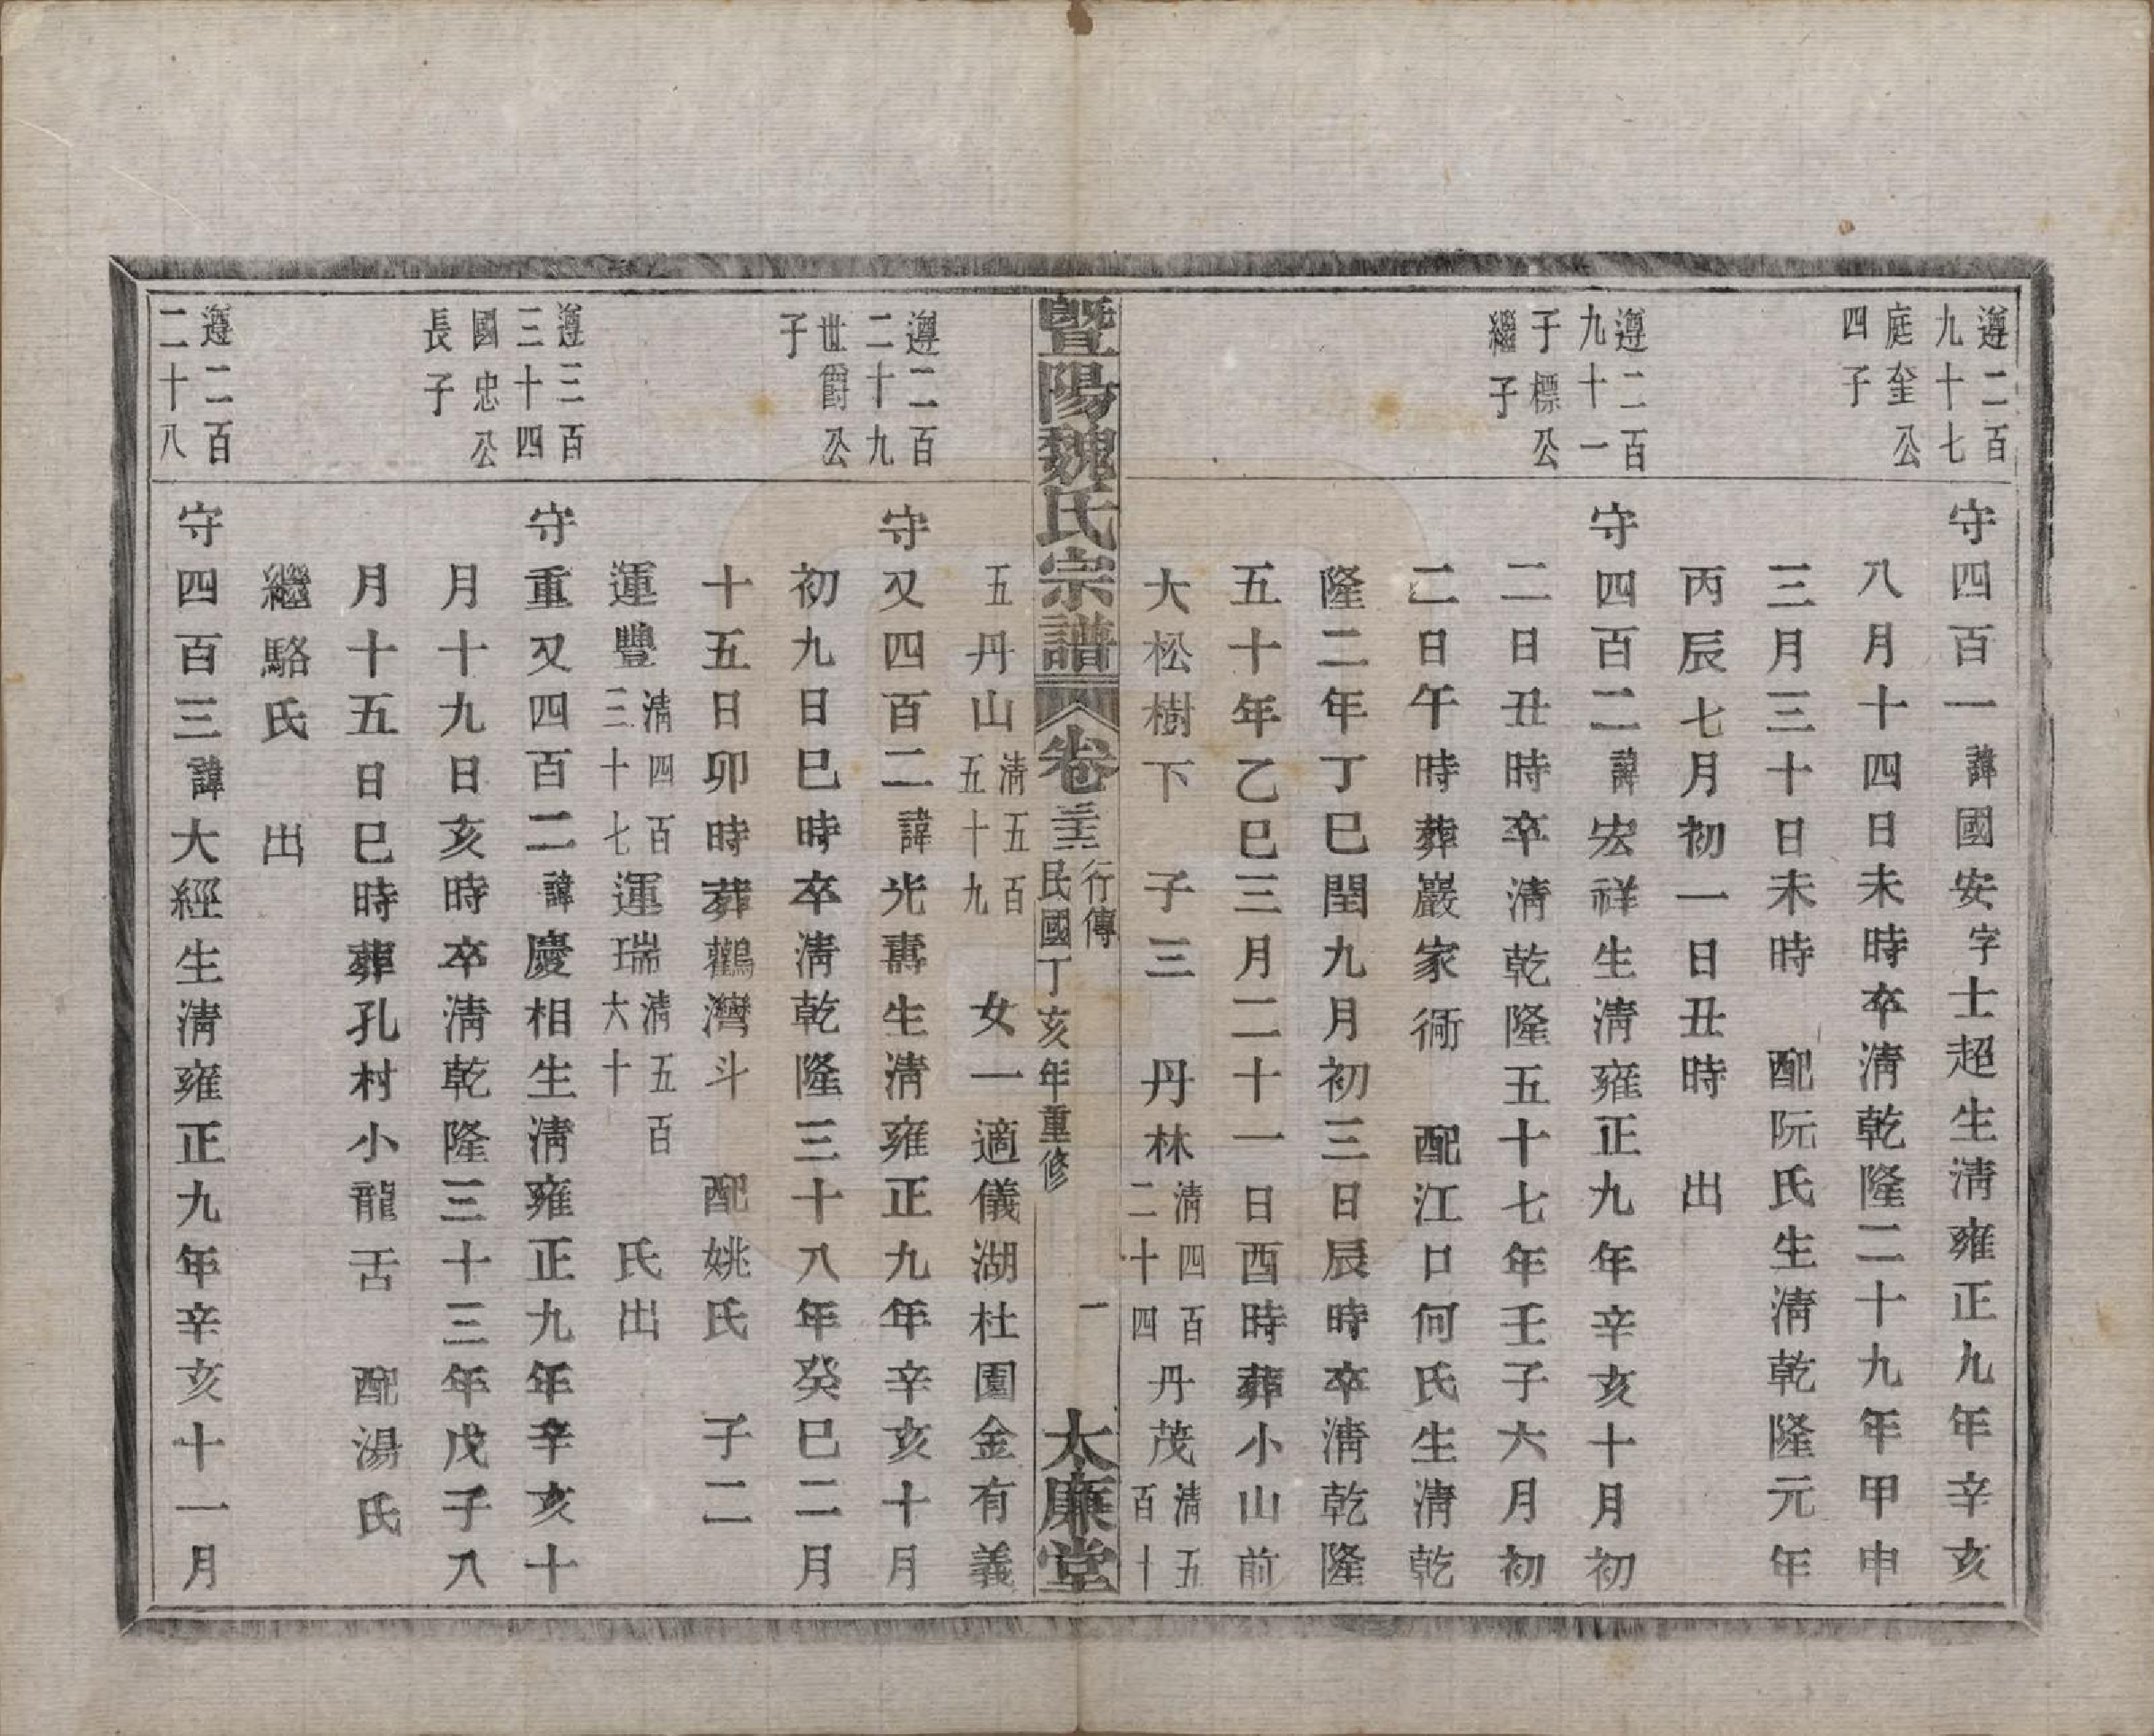 遵二百
九十七
庭奎公
四子
守四百一諱國安字士超生淸雍正九年辛亥
八月十四日未時卒淸乾隆二十九年甲申
三月三十日未時　配阮氏生淸乾隆元年
丙辰七月初一日丑時　出
遵二百
九十一
于標公
繼子
守四百二諱宏祥生淸雍正九年辛亥十月初
二日丑時卒淸乾隆五十七年壬子六月初
二日午時葬巖家衕　配江口何氏生淸乾
隆二年丁巳閏九月初三日辰時卒淸乾隆
五十年乙巳三月二十一日酉時葬小山前
大松樹下　子三　丹林淸四百二十四丹茂淸五百十
暨陽魏氏宗譜　卷三十三　行傳　民國丁亥年重修　一　太廉堂
五丹山淸五百五十九　女一適儀湖杜園金有義
遵二百
二十九
世爵公
子
守又四百二諱光壽生淸雍正九年辛亥十月
初九日巳時卒淸乾隆三十八年癸巳二月
十五日卯時葬鸛灣斗　配姚氏　子二
運豐淸四百三十七運瑞淸五百六十　氏出
遵三百
三十四
國忠公
長子
守重又四百二諱慶相生淸雍正九年辛亥十
月十九日亥時卒淸乾隆三十三年戊子八
月十五日巳時葬孔村小龍舌　配湯氏
繼駱氏　出
遵二百
二十八
守四百三諱大經生淸雍正九年辛亥十一月